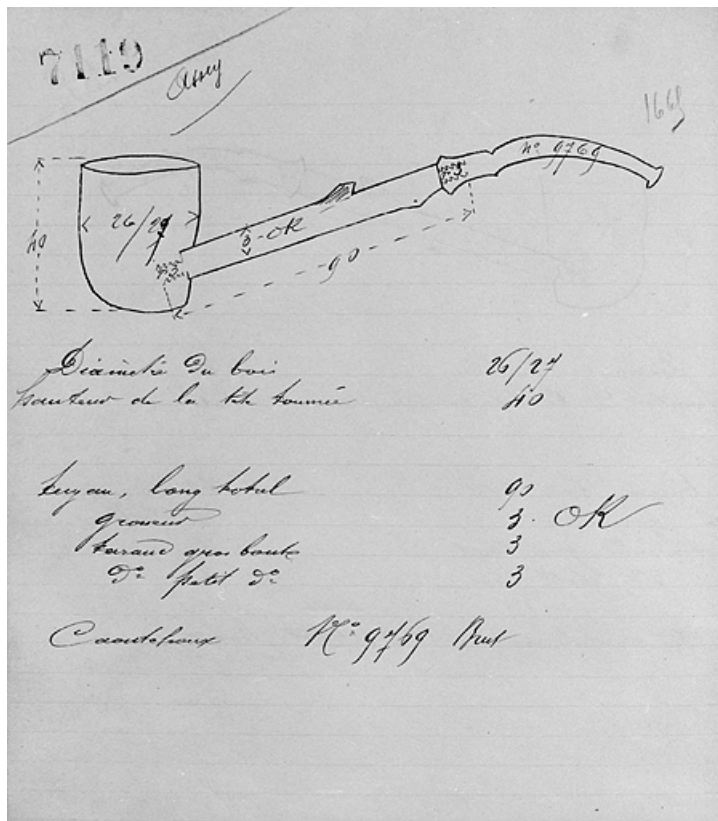 7119
Assy
166
nº 9769
26/27
40
3 - OK
90
Diamètre du bois 26/27
hauteur de la tête tournée 40
tuyau, long total 90
grosseur 3. OK
taraud gros bout 3
do petit do 3
Caoutchouc Nº 9769 Brut